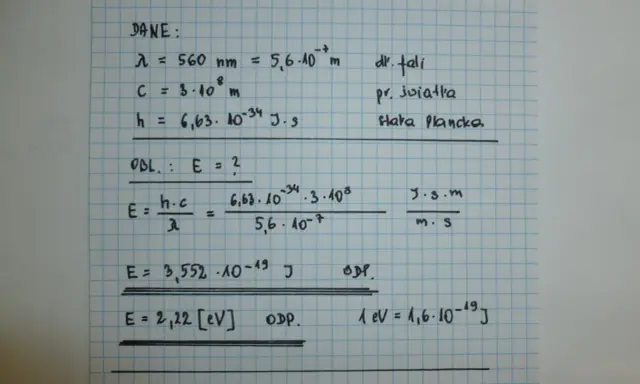 DANE:
λ = 560 nm = 5,6·10⁻⁷ m dł. fali
c = 3·10⁸ m pr. światła
h = 6,63·10⁻³⁴ J·s stała Plancka
OBL.: E = ?
E = h·c / λ = 6,63·10⁻³⁴·3·10⁸ / 5,6·10⁻⁷ J·s·m / m·s
E = 3,552·10⁻¹⁹ J ODP.
E = 2,22 [eV] ODP. 1 eV = 1,6·10⁻¹⁹ J